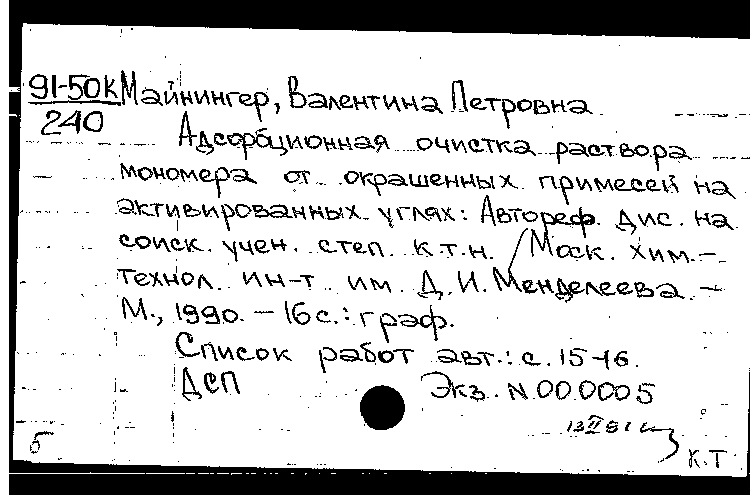 91-50К Майнингер, Валентина Петровна
240
Адсорбционная очистка раствора
мономера от окрашенных примесей на
активированных углях: Автореф. дис. на
соиск. учен. степ. к.т.н. / Моск. хим.-
технол. ин-т им. Д.И. Менделеева. -
М., 1990. - 16 с.: граф.
Список работ авт.: с. 15-16.
ДСП Экз. N 000005
б К.Т